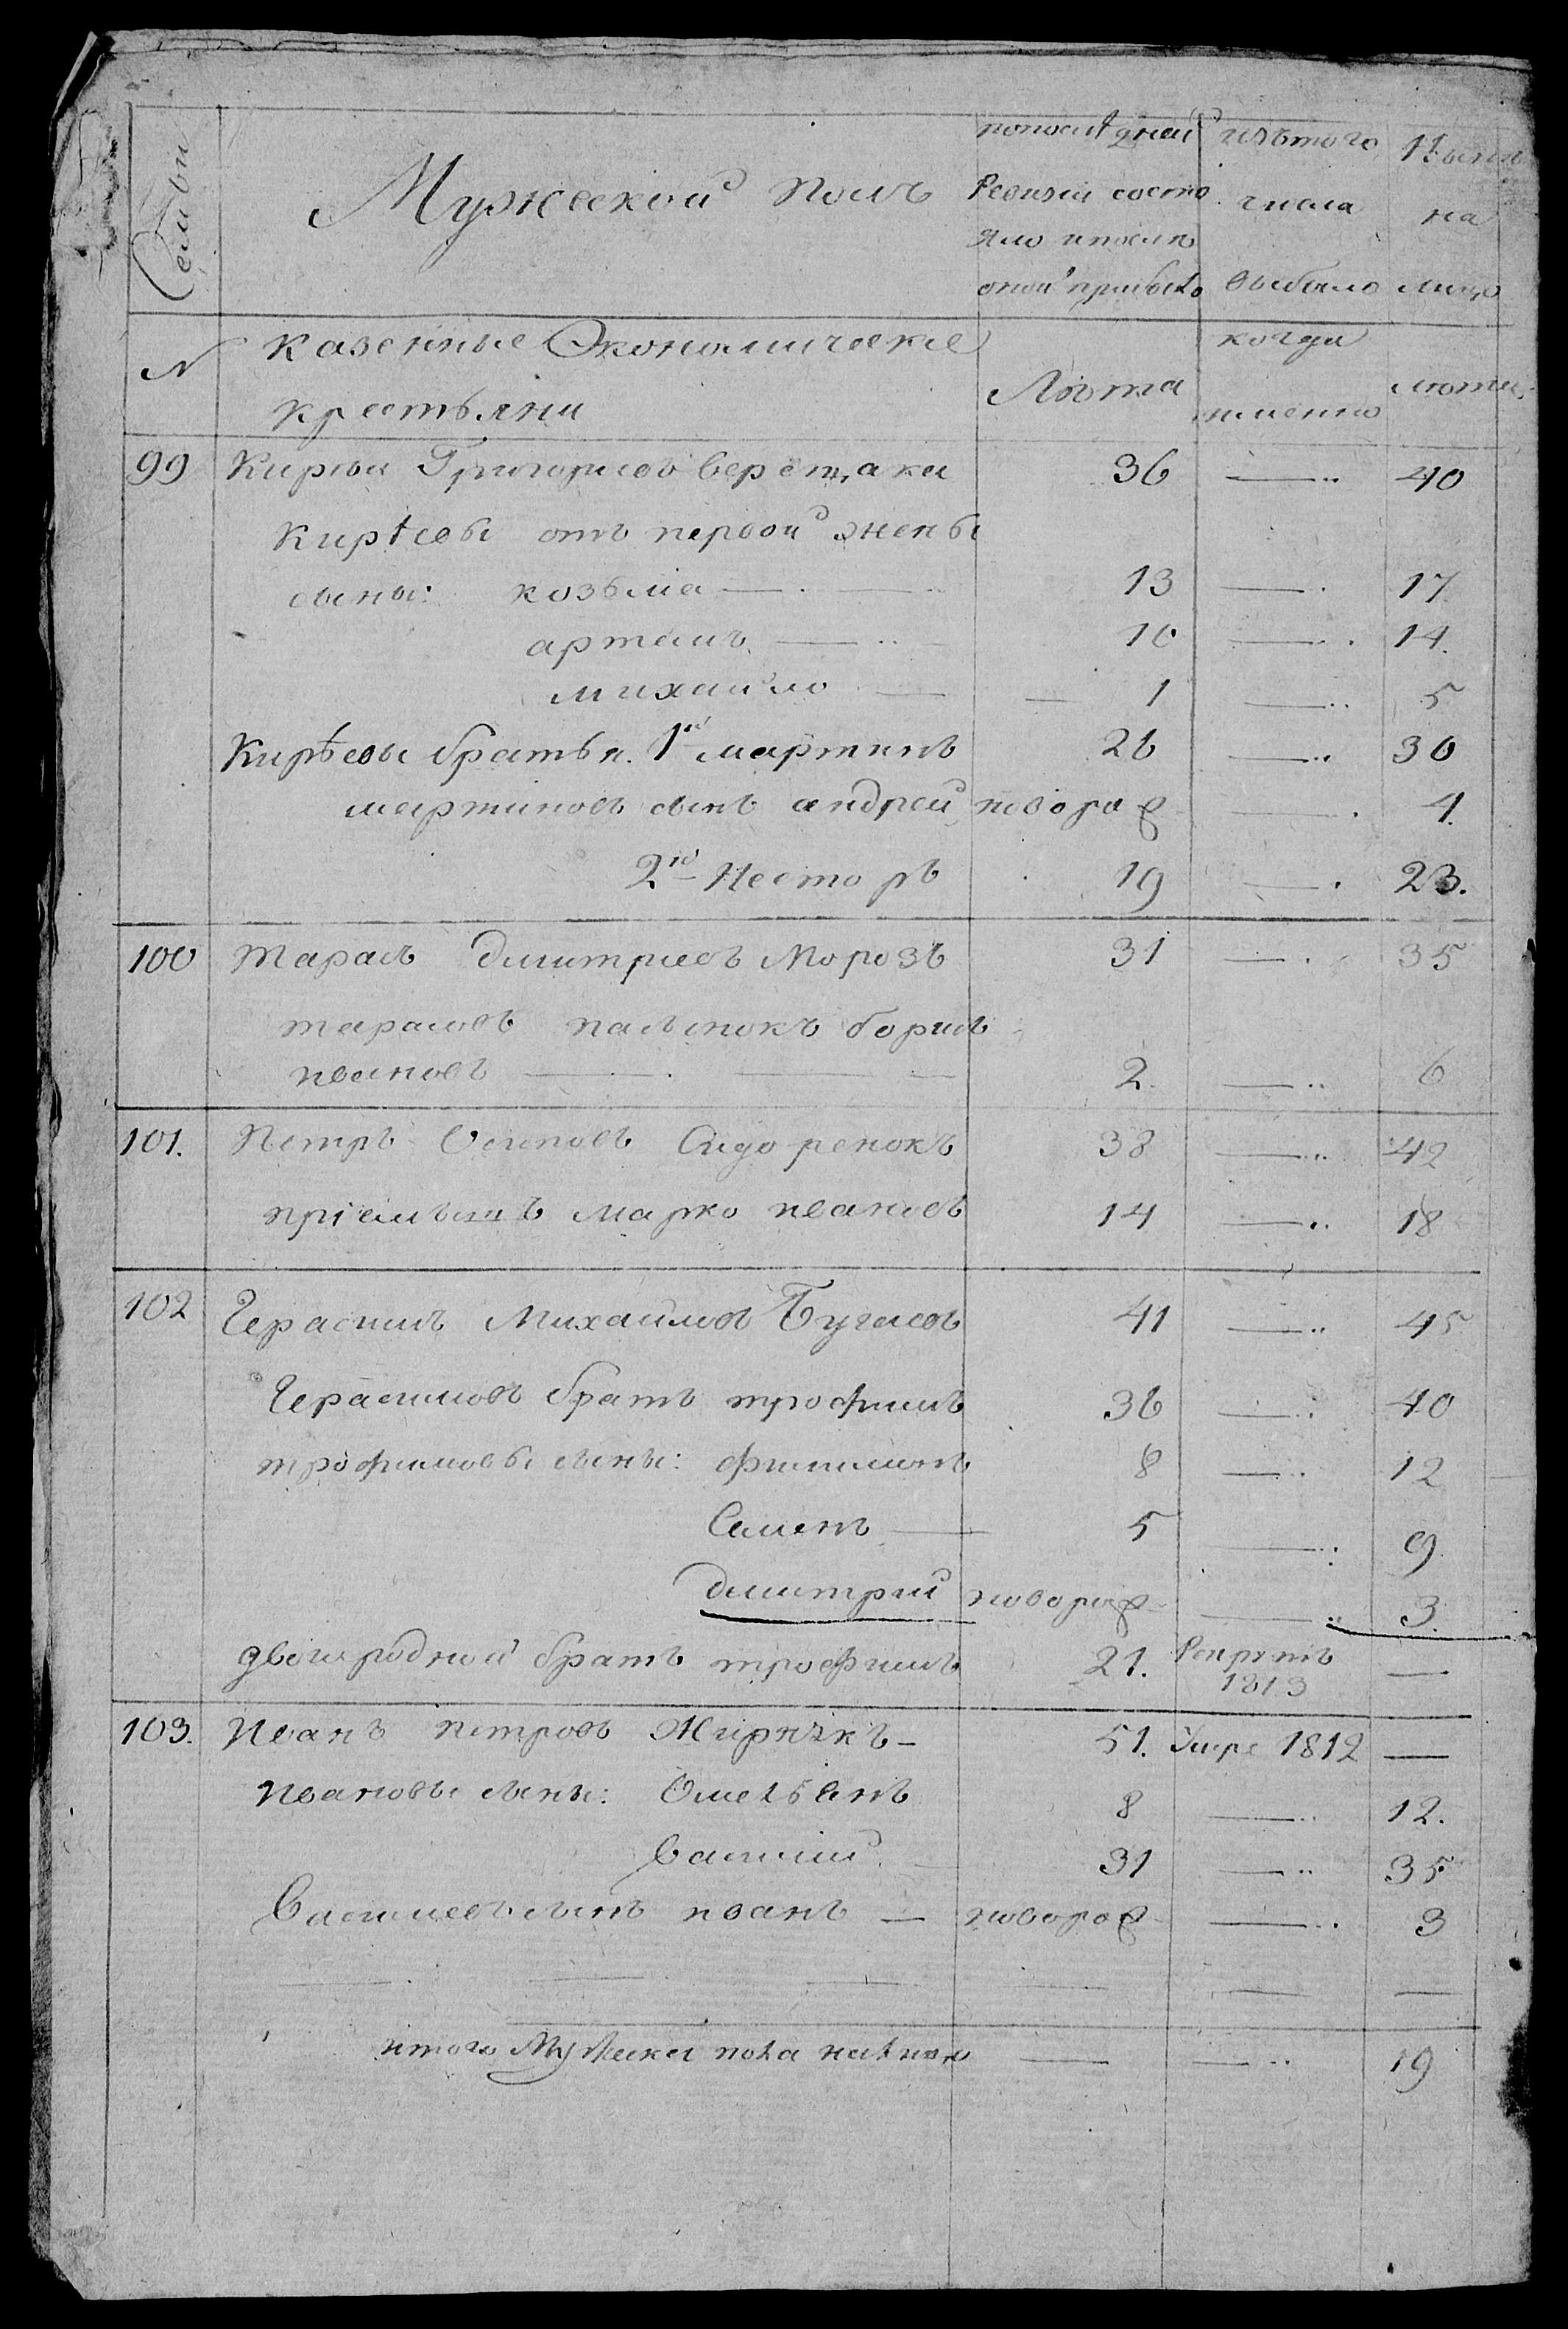 Семьи
Мужеской полъ
попослѣдней
Ревизіи состо
яло и послѣ
оной прибыло
изътого
числа
выбыло
Нынѣ
на
лицо
N
казенные Экономическіе
крестьяни
Лѣта
когда
именно
лѣта
99 Кирей Григорьевъ верещака 36 — 40
Кирѣевы отъ первой жены
сыны: козьма — 13 — 17
артемъ — 10 — 14
михайло — 1 — 5
Кирѣевы братья 1й мартинъ 26 — 30
мартиновъ сынъ андрей новорож — 4
2й Несторъ 19 — 23.
100 Тарасъ дмитриевъ Морозъ 31 — 35
тарасовъ пасынокъ борисъ
ивановъ — 2 — 6
101. Петръ Осиповъ Сидоренокъ 38 — 42
пріемышъ марко ивановъ 14 — 18
102 Герасимъ Михайловъ 41 — 45
Герасимовъ братъ трофимъ 36 — 40
трофимовы сыны: филимонъ 8 — 12
Семенъ — 5 — 9
дмитрий новорож — 3.
двоюродной братъ трофимъ 21. Рекрутъ —
1813
103. Иванъ петровъ 51. Умре 1812 —
Ивановы сыны: Омельянъ 8 — 12.
Василий 31 — 35
Васильевъ сынъ иванъ — новорож — 3
итого Мужеска пола налицо — — 19